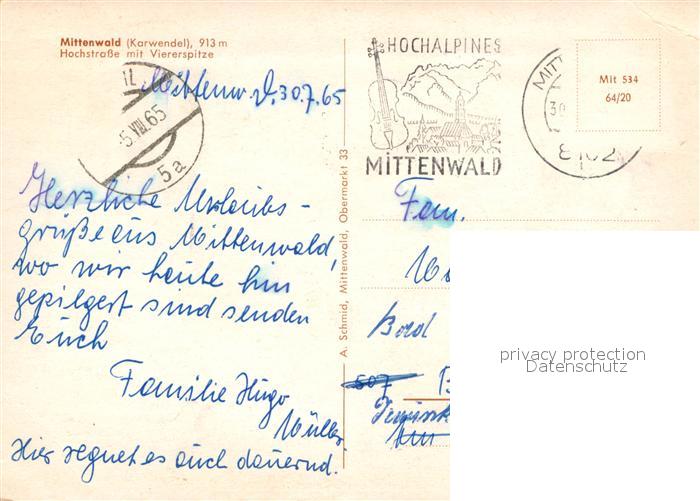 Mittenwald (Karwendel), 913 m
Hochstraße mit Viererspitze
Mittenw. d, 30.7.65
-5.VIII.65
5a
Herzliche Urlaubs-
grüße aus Mittenwald,
wo wir heute hin
gepilgert sind senden
Euch
Familie Hugo
Müller
Hier regnet es auch dauernd.
A. Schmid, Mittenwald, Obermarkt 33
HOCHALPINES
MITTENWALD
MITT
30
8102
Mit 534
64/20
Fam.
507
privacy protection
Datenschutz